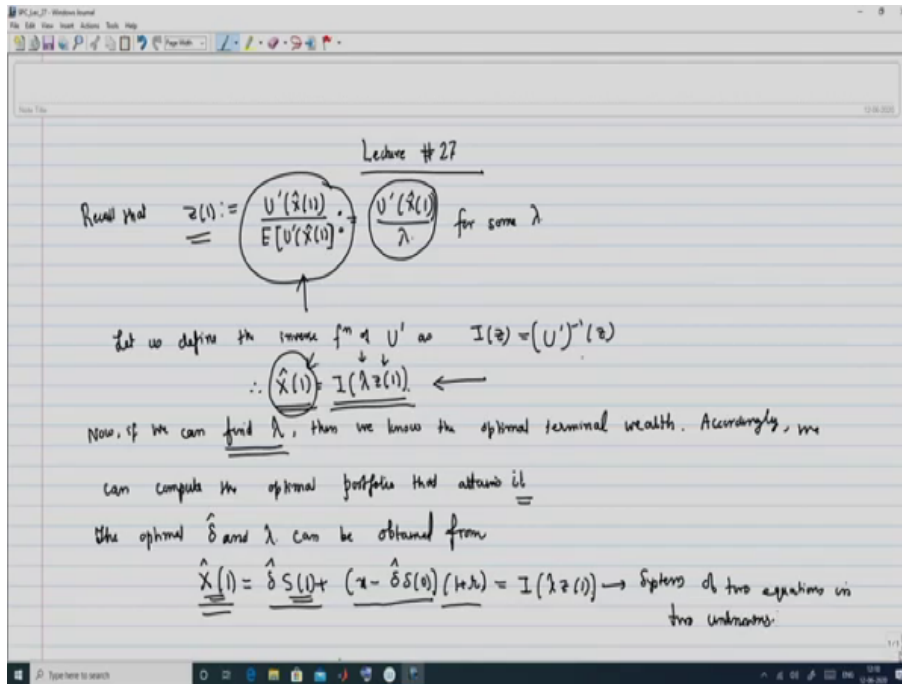 SPC_Lec_27 - Windows Journal
File Edit View Insert Actions Tools Help
Page Width
Note Title
12-06-2020
Lecture #27
Recall that z(1) := U'(X̂(1)) / E[U'(X̂(1)] = U'(X̂(1)) / λ for some λ
Let us define the inverse fⁿ of U' as I(z) = (U')⁻¹(z)
∴ X̂(1) = I(λz(1)).
Now, if we can find λ, then we know the optimal terminal wealth. Accordingly, we
can compute the optimal portfolio that attains it
The optimal δ̂ and λ can be obtained from
X̂(1) = δ̂ S(1) + (x - δ̂ S(0)) (1+r) = I(λz(1)) → System of two equations in
two unknowns.
1/1
Type here to search
12-06-2020